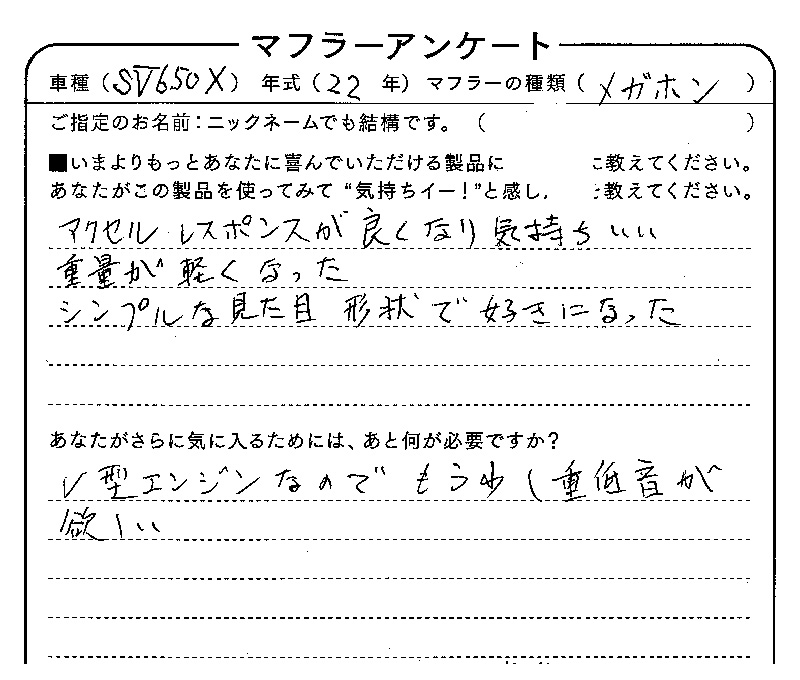 マフラーアンケート
車種（SV650X） 年式（22 年） マフラーの種類（メガホン）
ご指定のお名前：ニックネームでも結構です。（ ）
■いまよりもっとあなたに喜んでいただける製品に に教えてください。
あなたがこの製品を使ってみて“気持ちイー！”と感し. を教えてください。
アクセルレスポンスが良くなり気持ちいい
重量が軽くなった
シンプルな見た目 形状で好きになった
あなたがさらに気に入るためには、あと何が必要ですか？
V型エンジンなのでもう少し重低音が
欲しい